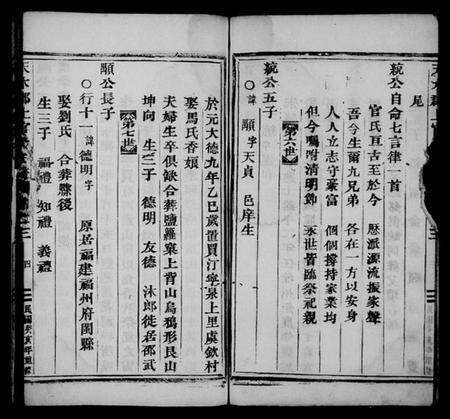 尾
統公自命七言律一首
官氏亘古至於今　歷派源流振家聲
吾今生爾九兄弟　各在一方以安身
人人立志守業富　個個撐持家業均
但今囑咐清明節　永世皆臨祭祀親
第六世
統公五子
○諱　顯　字　天貞　邑庠生
於元大德九年乙巳歲置買汀寧泉上里虞欽村
娶馬氏香娘
夫婦生卒俱缺合葬鹽籮窠上背山烏鴉形艮山
坤向　生三子　德明　友德　沐郎徙居邵武
第七世
顯公長子
○行十一諱德明字　原居福建福州府閩縣
娶劉氏　合葬縣後
生三子　福禮　知禮　義禮
四